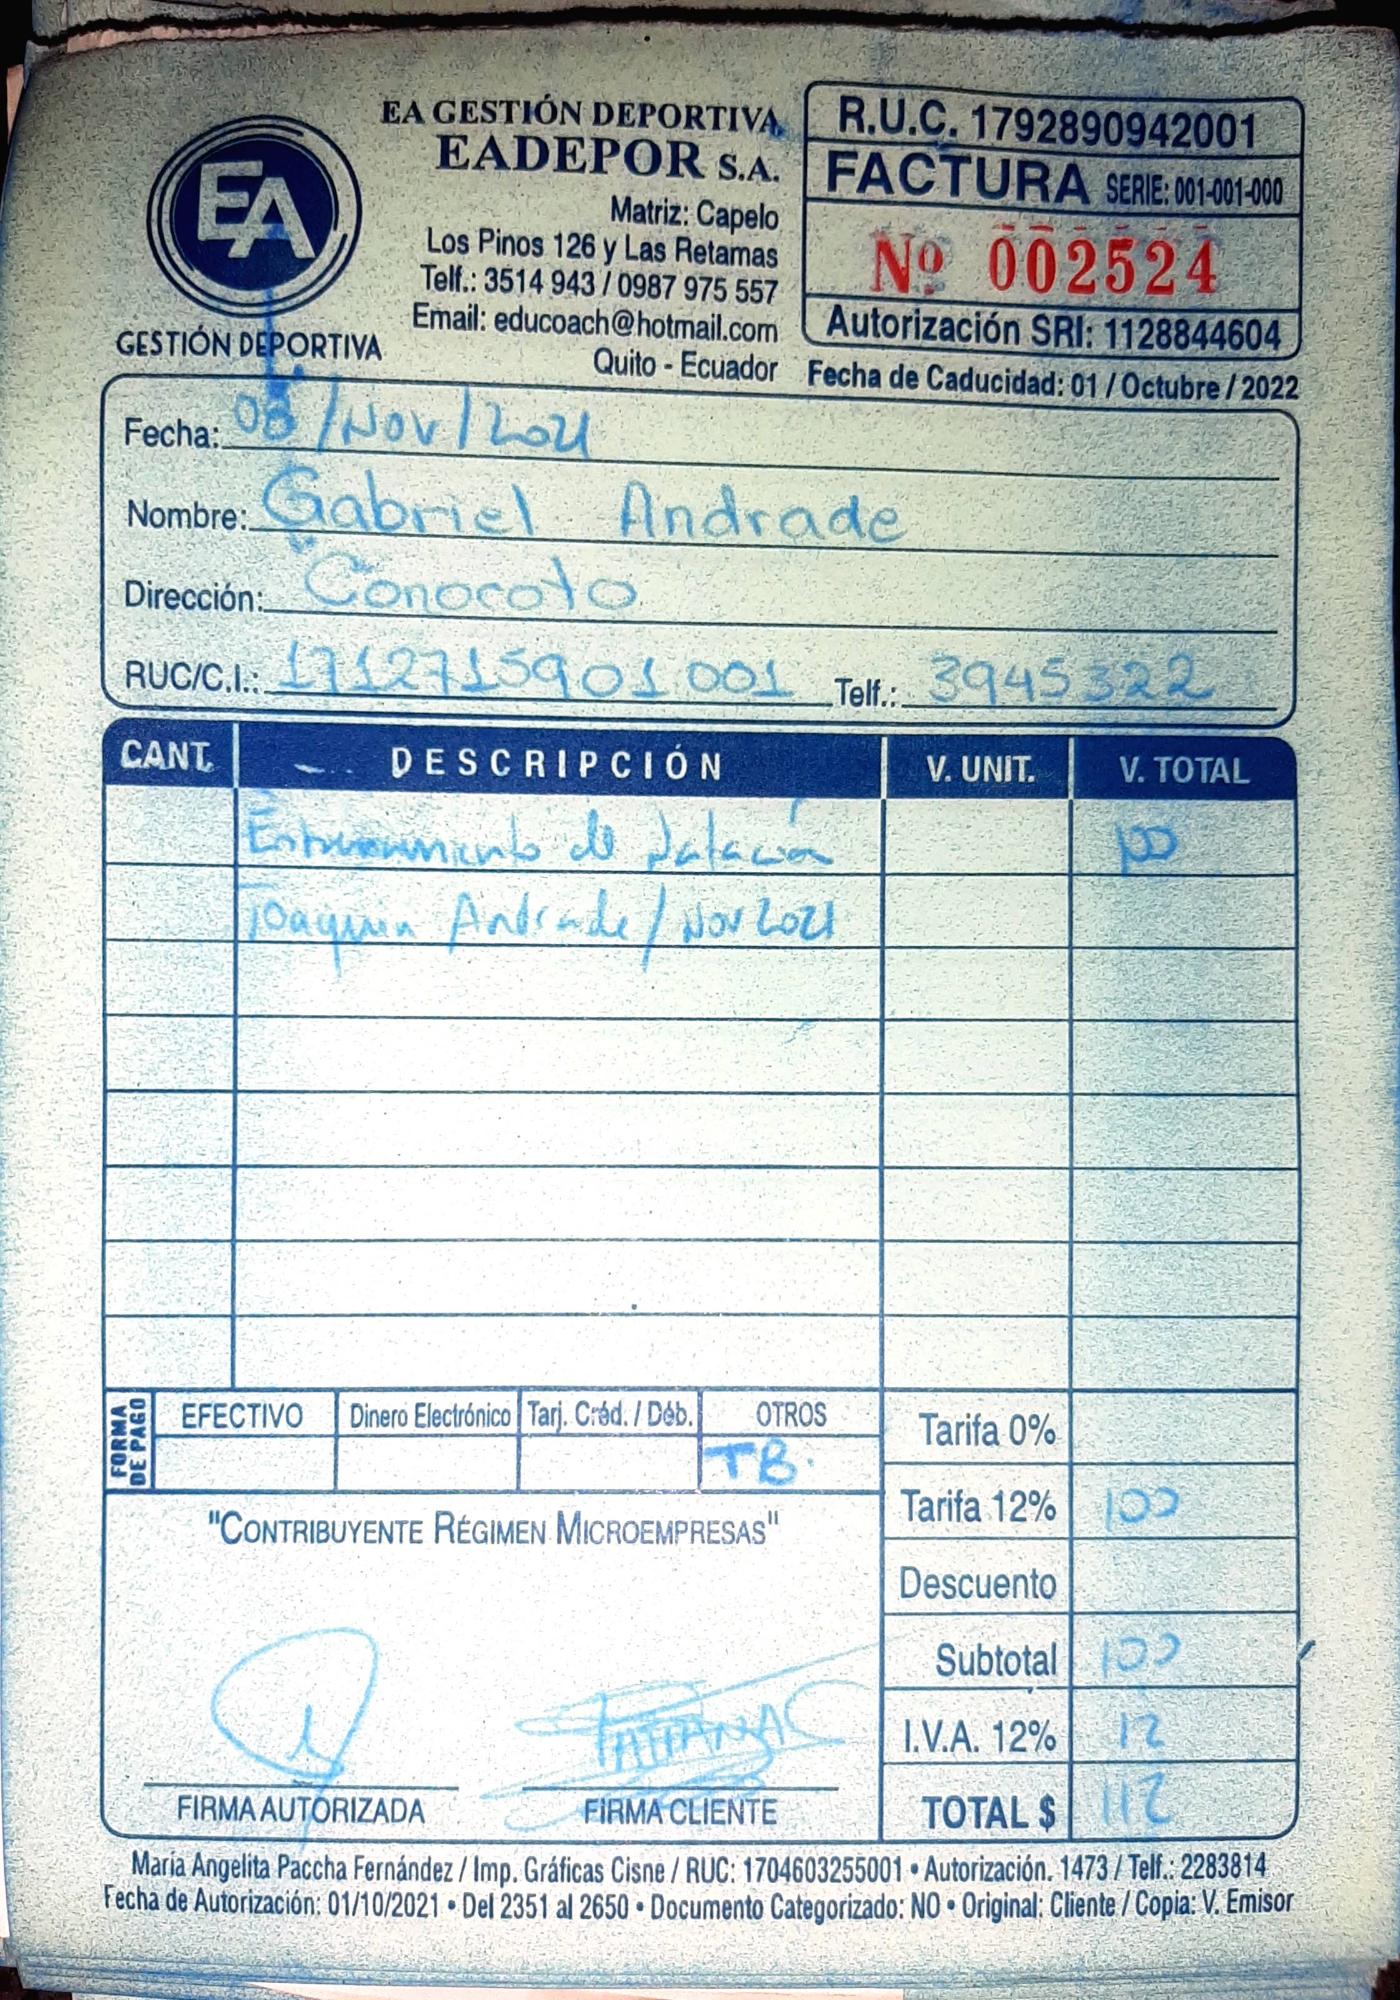 EA
GESTIÓN DEPORTIVA
EA GESTIÓN DEPORTIVA
EADEPOR S.A.
Matriz: Capelo
Los Pinos 126 y Las Retamas
Telf.: 3514 943 / 0987 975 557
Email: educoach@hotmail.com
Quito - Ecuador
R.U.C. 1792890942001
FACTURA SERIE: 001-001-000
Nº 002524
Autorización SRI: 1128844604
Fecha de Caducidad: 01 / Octubre / 2022
Fecha: 08/Nov/2021
Nombre: Gabriel Andrade
Dirección: Conocoto
RUC/C.I.: 1712715901001 Telf.: 3945322
CANT. DESCRIPCIÓN V. UNIT. V. TOTAL
Entrenamiento de Natación 100
Joaquin Andrade / Nov 2021
FORMA DE PAGO
EFECTIVO Dinero Electrónico Tarj. Créd. / Déb. OTROS
TB.
Tarifa 0%
Tarifa 12% 100
Descuento
Subtotal 100
I.V.A. 12% 12
TOTAL $ 112
"CONTRIBUYENTE RÉGIMEN MICROEMPRESAS"
FIRMA AUTORIZADA FIRMA CLIENTE
María Angelita Paccha Fernández / Imp. Gráficas Cisne / RUC: 1704603255001 • Autorización. 1473 / Telf.: 2283814
Fecha de Autorización: 01/10/2021 • Del 2351 al 2650 • Documento Categorizado: NO • Original: Cliente / Copia: V. Emisor